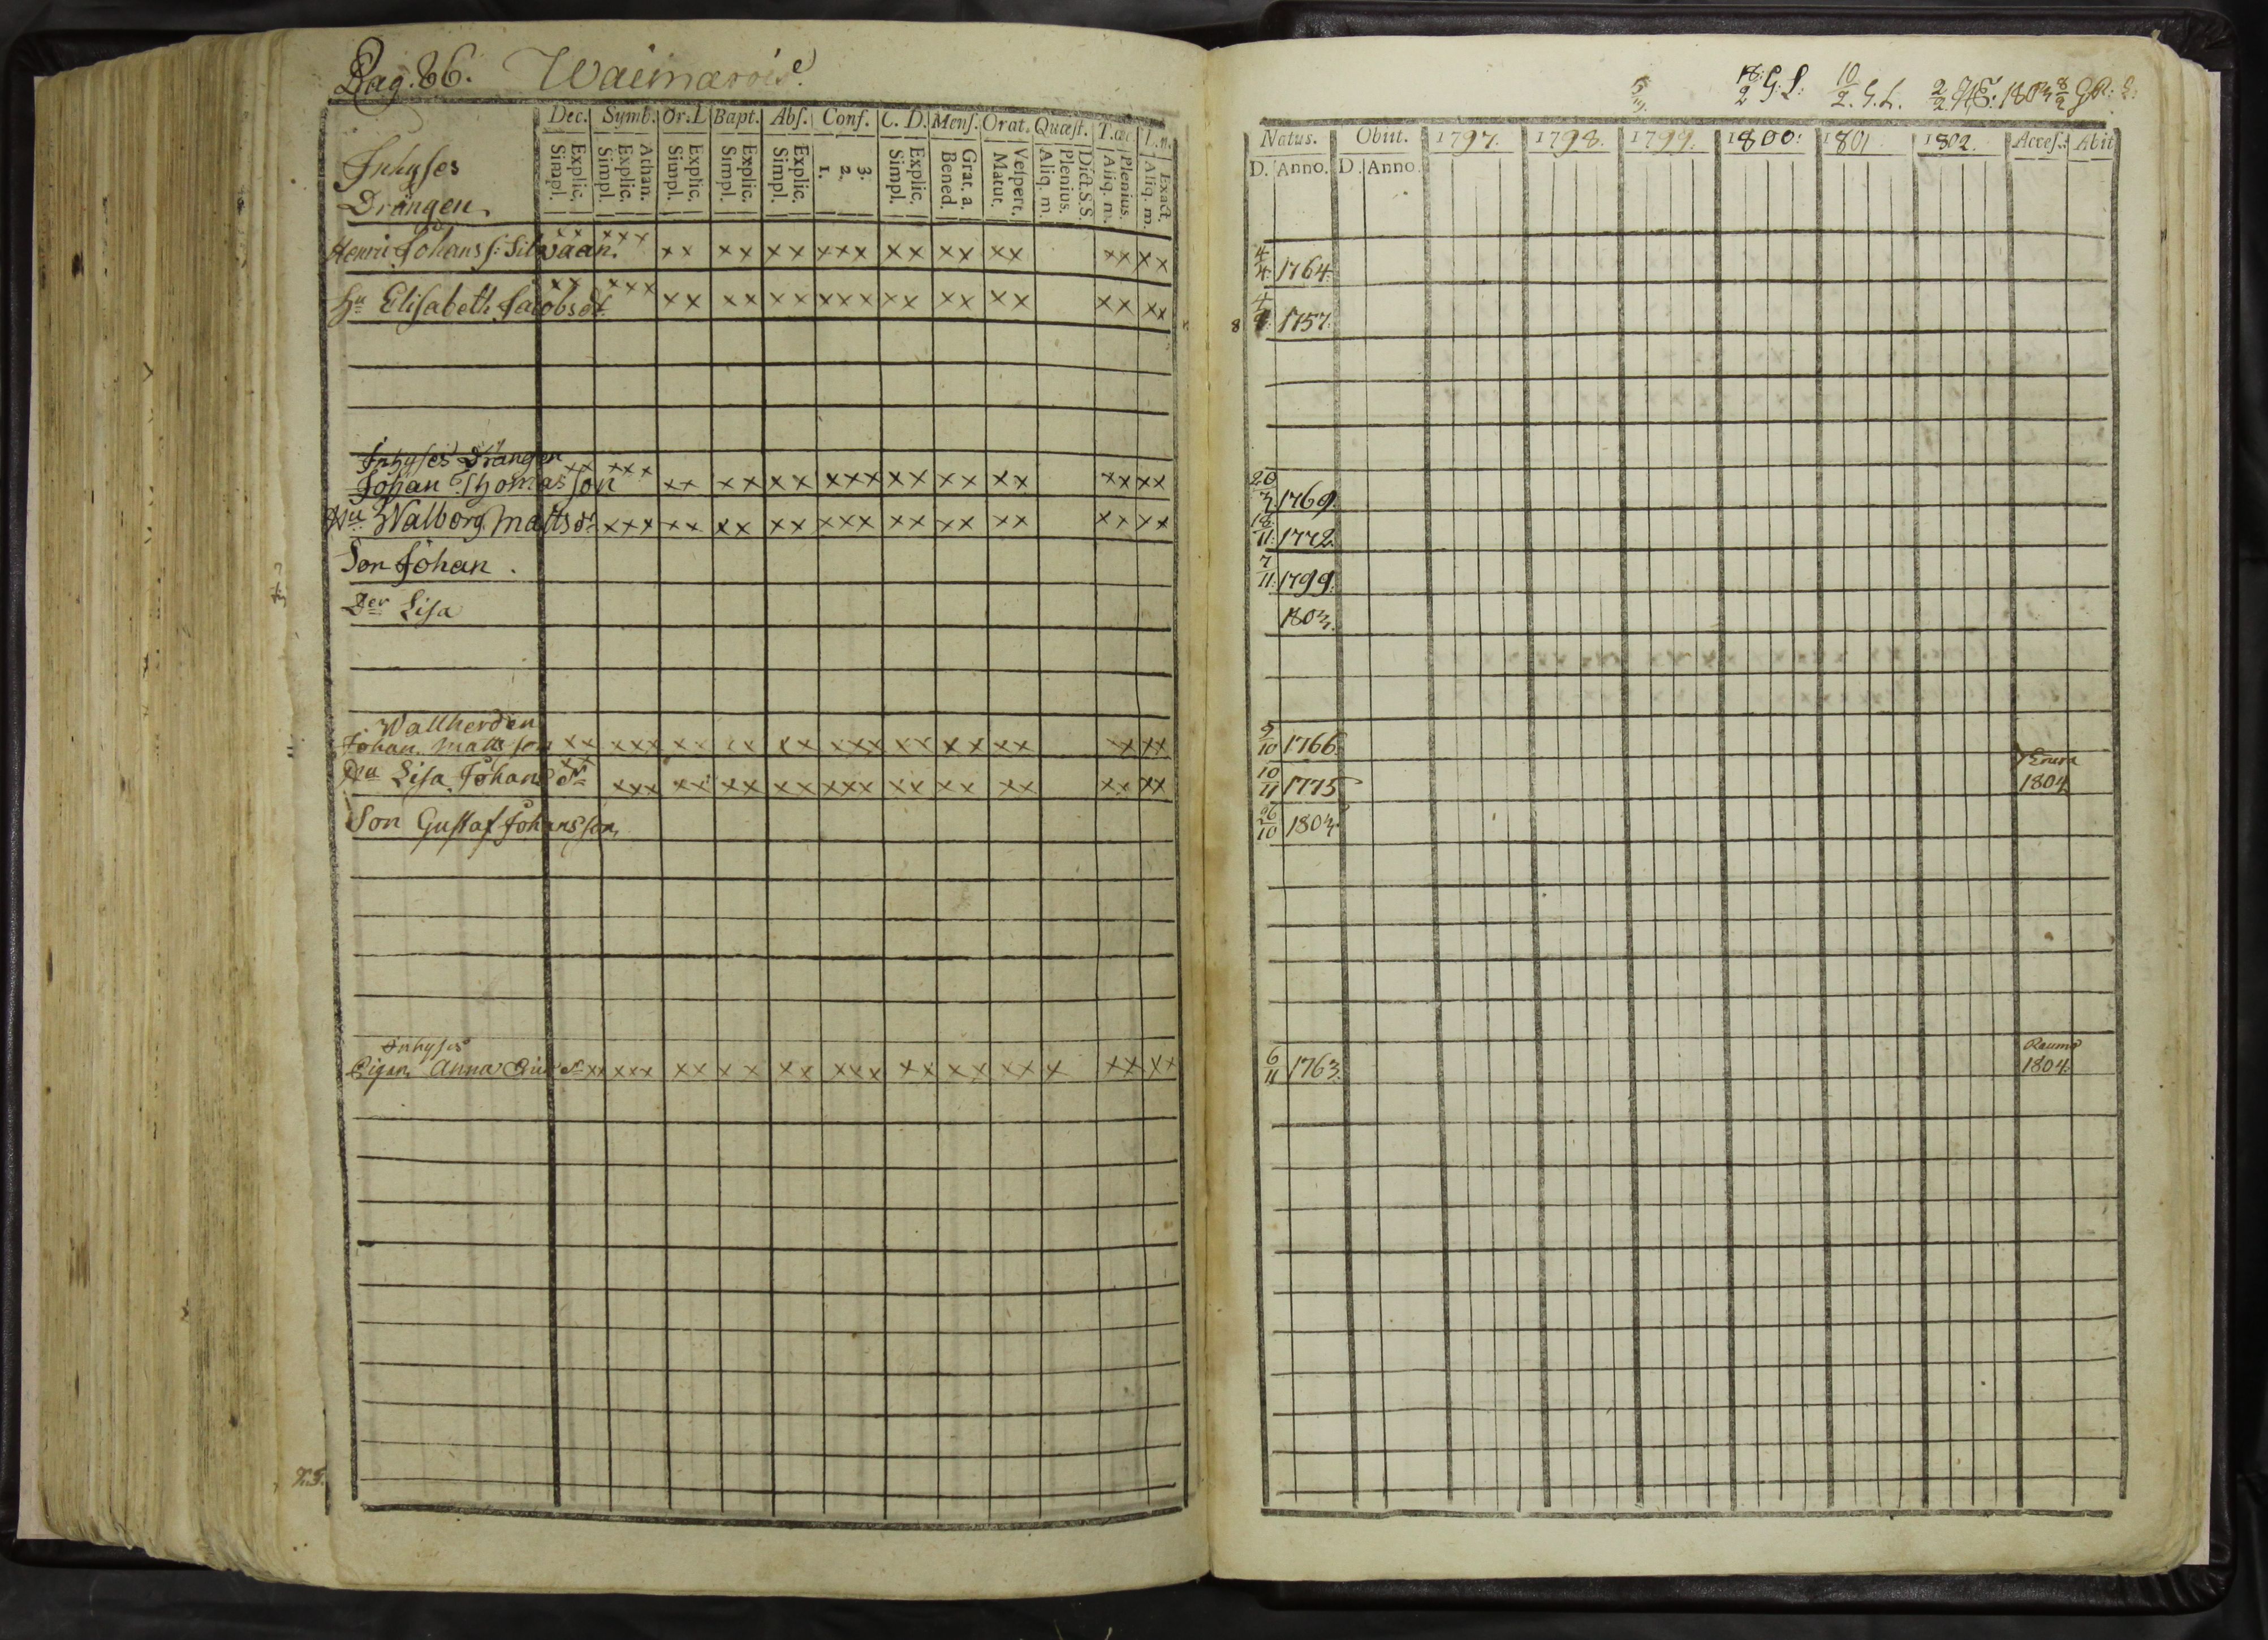 Pag. 86. Waimarois
Dec. Symb. Or. L Bapt. Abs. Conf. C. D. Mens. Orat. Quæst. T. œc L. n.
Explic. Simpl. Athan. Explic. Simpl. Explic. Simpl. Explic. Simpl. Explic. Simpl. 3. 2. 1. Explic. Simpl. Grat. a. Bened. Vespert. Matut. Dict. S.S. Plenius. Aliq. m. Plenius. Aliq. m. Exact. Aliq. m.
Inhyses
Drängen
Henric Johans s:
xx xxx xx xx xx xxx xx xx xx xx xx
Hu Elisabeth Jacobsdr
xx xxx xx xx xx xxx xx xx xx xx xx
Inhyses Drängen
Johan Thomasson xx xxx xx xx xx xxx xx xx xx xx xx
Hu Walborg Mattsdr xxx xx xx xx xxx xx xx xx xx xx
Son Johan.
Der Lisa
Wallherden
Johan Mattsson xx xxx xx xx xx xxx xx xx xx xx xx
Hu Lisa Johansdr xx xxx xx xx xx xxx xx xx xx xx xx
Son Gustaf Johansson
Inhyses
Pigan Anna xx xxx xx xx xx xxx xx xx xx x x xx xx
25.
18/2 G. L: 10/2. G. L. 2/2 1803 8/2
Natus. Obiit. 1797. 1798. 1799. 1800: 1801 1802. Acces. Abit
D. Anno. D. Anno.
4/4 1764.
8 1757.
20/3 1769.
18/11. 1772.
7/11. 1799.
1803.
5/10 1766.
10/11 1775 1804
26/10 1803.
6/11 1763. Raumo
1804.